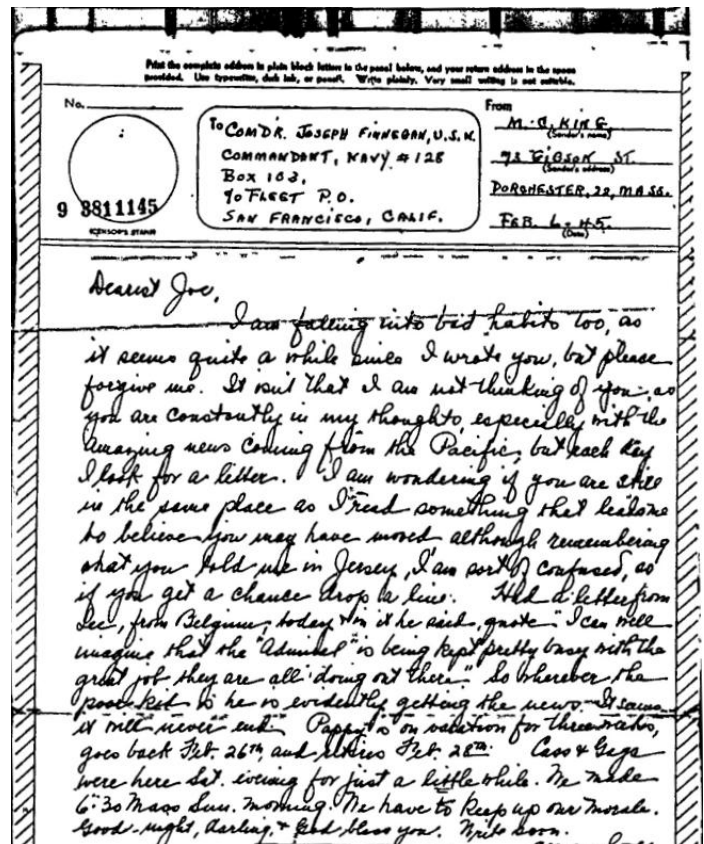 Print the complete address in plain block letters in the panel below, and your return address in the space
provided. Use typewriter, dark ink, or pencil. Write plainly. Very small writing is not suitable.
No.
To COMDR. JOSEPH FINNEGAN, U.S.N.
COMMANDANT, NAVY # 128
BOX 103,
% FLEET P.O.
SAN FRANCISCO, CALIF.
From
M. C. KING
(Sender's name)
93 GIBSON ST.
(Sender's address)
DORCHESTER, 22, MASS.
FEB. 6-45.
(Date)
9 3811145
CENSOR'S STAMP
Dearest Joe,
I am falling into bad habits too, as
it seems quite a while since I wrote you, but please
forgive me. It isn't that I am not thinking of you, as
you are constantly in my thoughts, especially with the
amazing news coming from the Pacific, but each day
I look for a letter. I am wondering if you are still
in the same place as I read something that leads me
to believe you may have moved although remembering
what you told me in Jersey, I'm sort of confused, so
if you get a chance drop a line. Had a letter from
Lee, from Belgium, today & in it he said, quote "I can well
imagine that the "Admiral" is being kept pretty busy with the
great job they are all doing out there." So wherever the
poor kid is he is evidently getting the news. It seems
it will never end. Pappy is on vacation for three weeks,
goes back Feb. 26th, and retires Feb. 28th. Cass & Gega
were here Sat. evening for just a little while. We made
6:30 Mass Sun. morning. We have to keep up our morale.
Good-night, darling, & God bless you. Write soon.